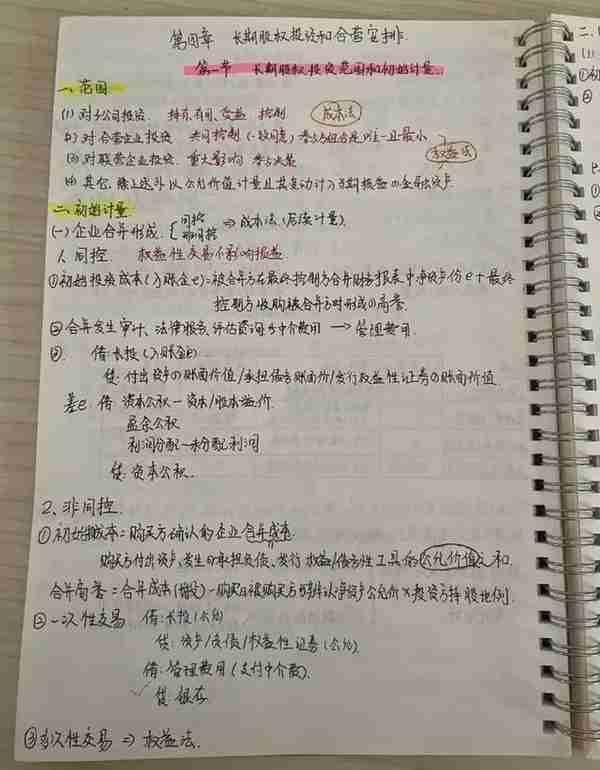 第四章 长期股权投资和合营安排.
第一节 长期股权投资范围和初始计量.
一、范围
(1) 对子公司投资. 控制 成本法
(2) 对合营企业投资 共同控制 (一致同意) 参与方组合是唯一且最小.
(3) 对联营企业投资. 重大影响 参与决策. 权益法
(4) 其它. 除上述外以公允价值计量且其变动计入当期损益の金融资产.
二、初始计量
(一) 企业合并形成. { 同控 非同控 ⇒ 成本法 (后续计量).
1. 同控. 权益性交易不影响损益.
①初始投资成本(入账金e)=被合并方在最终控制方合并财务报表中净资产份e+最终
控制方收购被合并方时形成の商誉.
②合并发生审计、法律服务、评估咨询等中介费用 → 管理费用.
③. 借:长投(入账金e)
贷:付出资产の账面价值/承担债务账面价/发行权益性证券の账面价值
差e. 借:资本公积-资本/股本溢价.
盈余公积
利润分配-未分配利润
贷:资本公积.
2、非同控.
①初始投资成本=购买方确认的企业合并成本.
购买方付出资产、发生or承担负债、发行权益/债务性工具的公允价值之和.
合并商誉=合并成本(长投)-购买日被购买方可辨认净资产公允价×投资方持股比例.
②一次性交易 借:长投(公允)
贷:资产/负债/权益性证券(公允).
借:管理费用(支付中介费).
贷:银存.
③多次性交易 ⇒ 权益法.